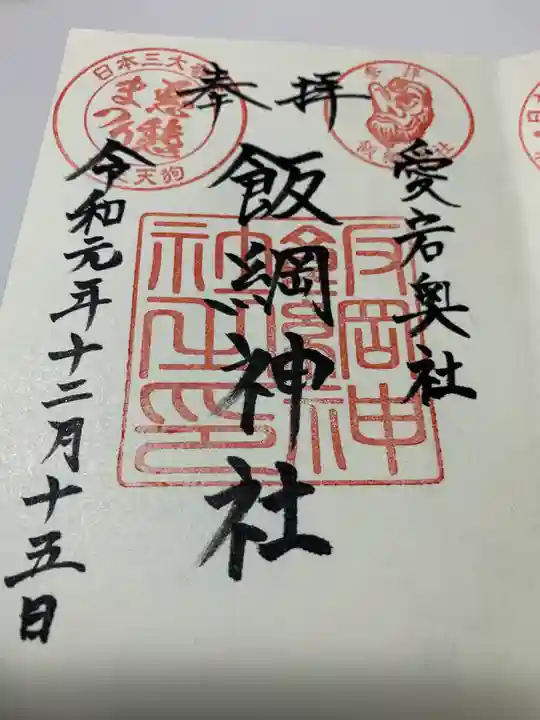 奉拝
愛宕奥社
飯綱神社
令和元年十二月十五日
日本三大
悪態
まつり
天狗
飯綱神社印